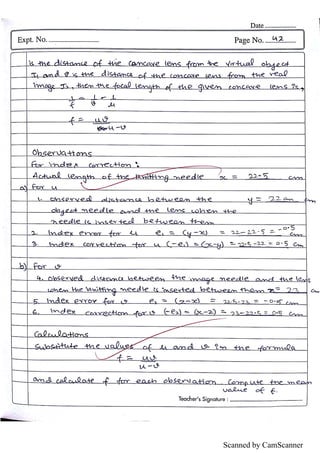 Date
Expt. No.
Page No. 42
is the distance of the concave lens from the virtual object
I₁ and v is the distance of the concave lens from the real
image I₂, then the focal length of the given concave lens is,
1/f = 1/v - 1/u
f = uv
u-v
Observations
For index correction:
Actual length of the knitting needle x = 22.5 cm
a) For u
1. observed distance between the y = 22 cm
object needle and the lens when the
needle is inserted between them
2. Index error for u e₁ = (y-x) = 22-22.5 = -0.5 cm
3. Index correction for u (-e₁) = (x-y) = 22.5-22 = 0.5 cm
b) For v
4. observed distance between the image needle and the lens
when the knitting needle is inserted between them cm
5. Index error for v e₂ = (z-x) = cm
6. Index correction for v (-e₂) = (x-z) = cm
Calculations
Substitute the values of u and v in the formula
f = uv
u-v
and calculate f for each observation. Compute the mean
value of f.
Teacher's Signature :
Scanned by CamScanner